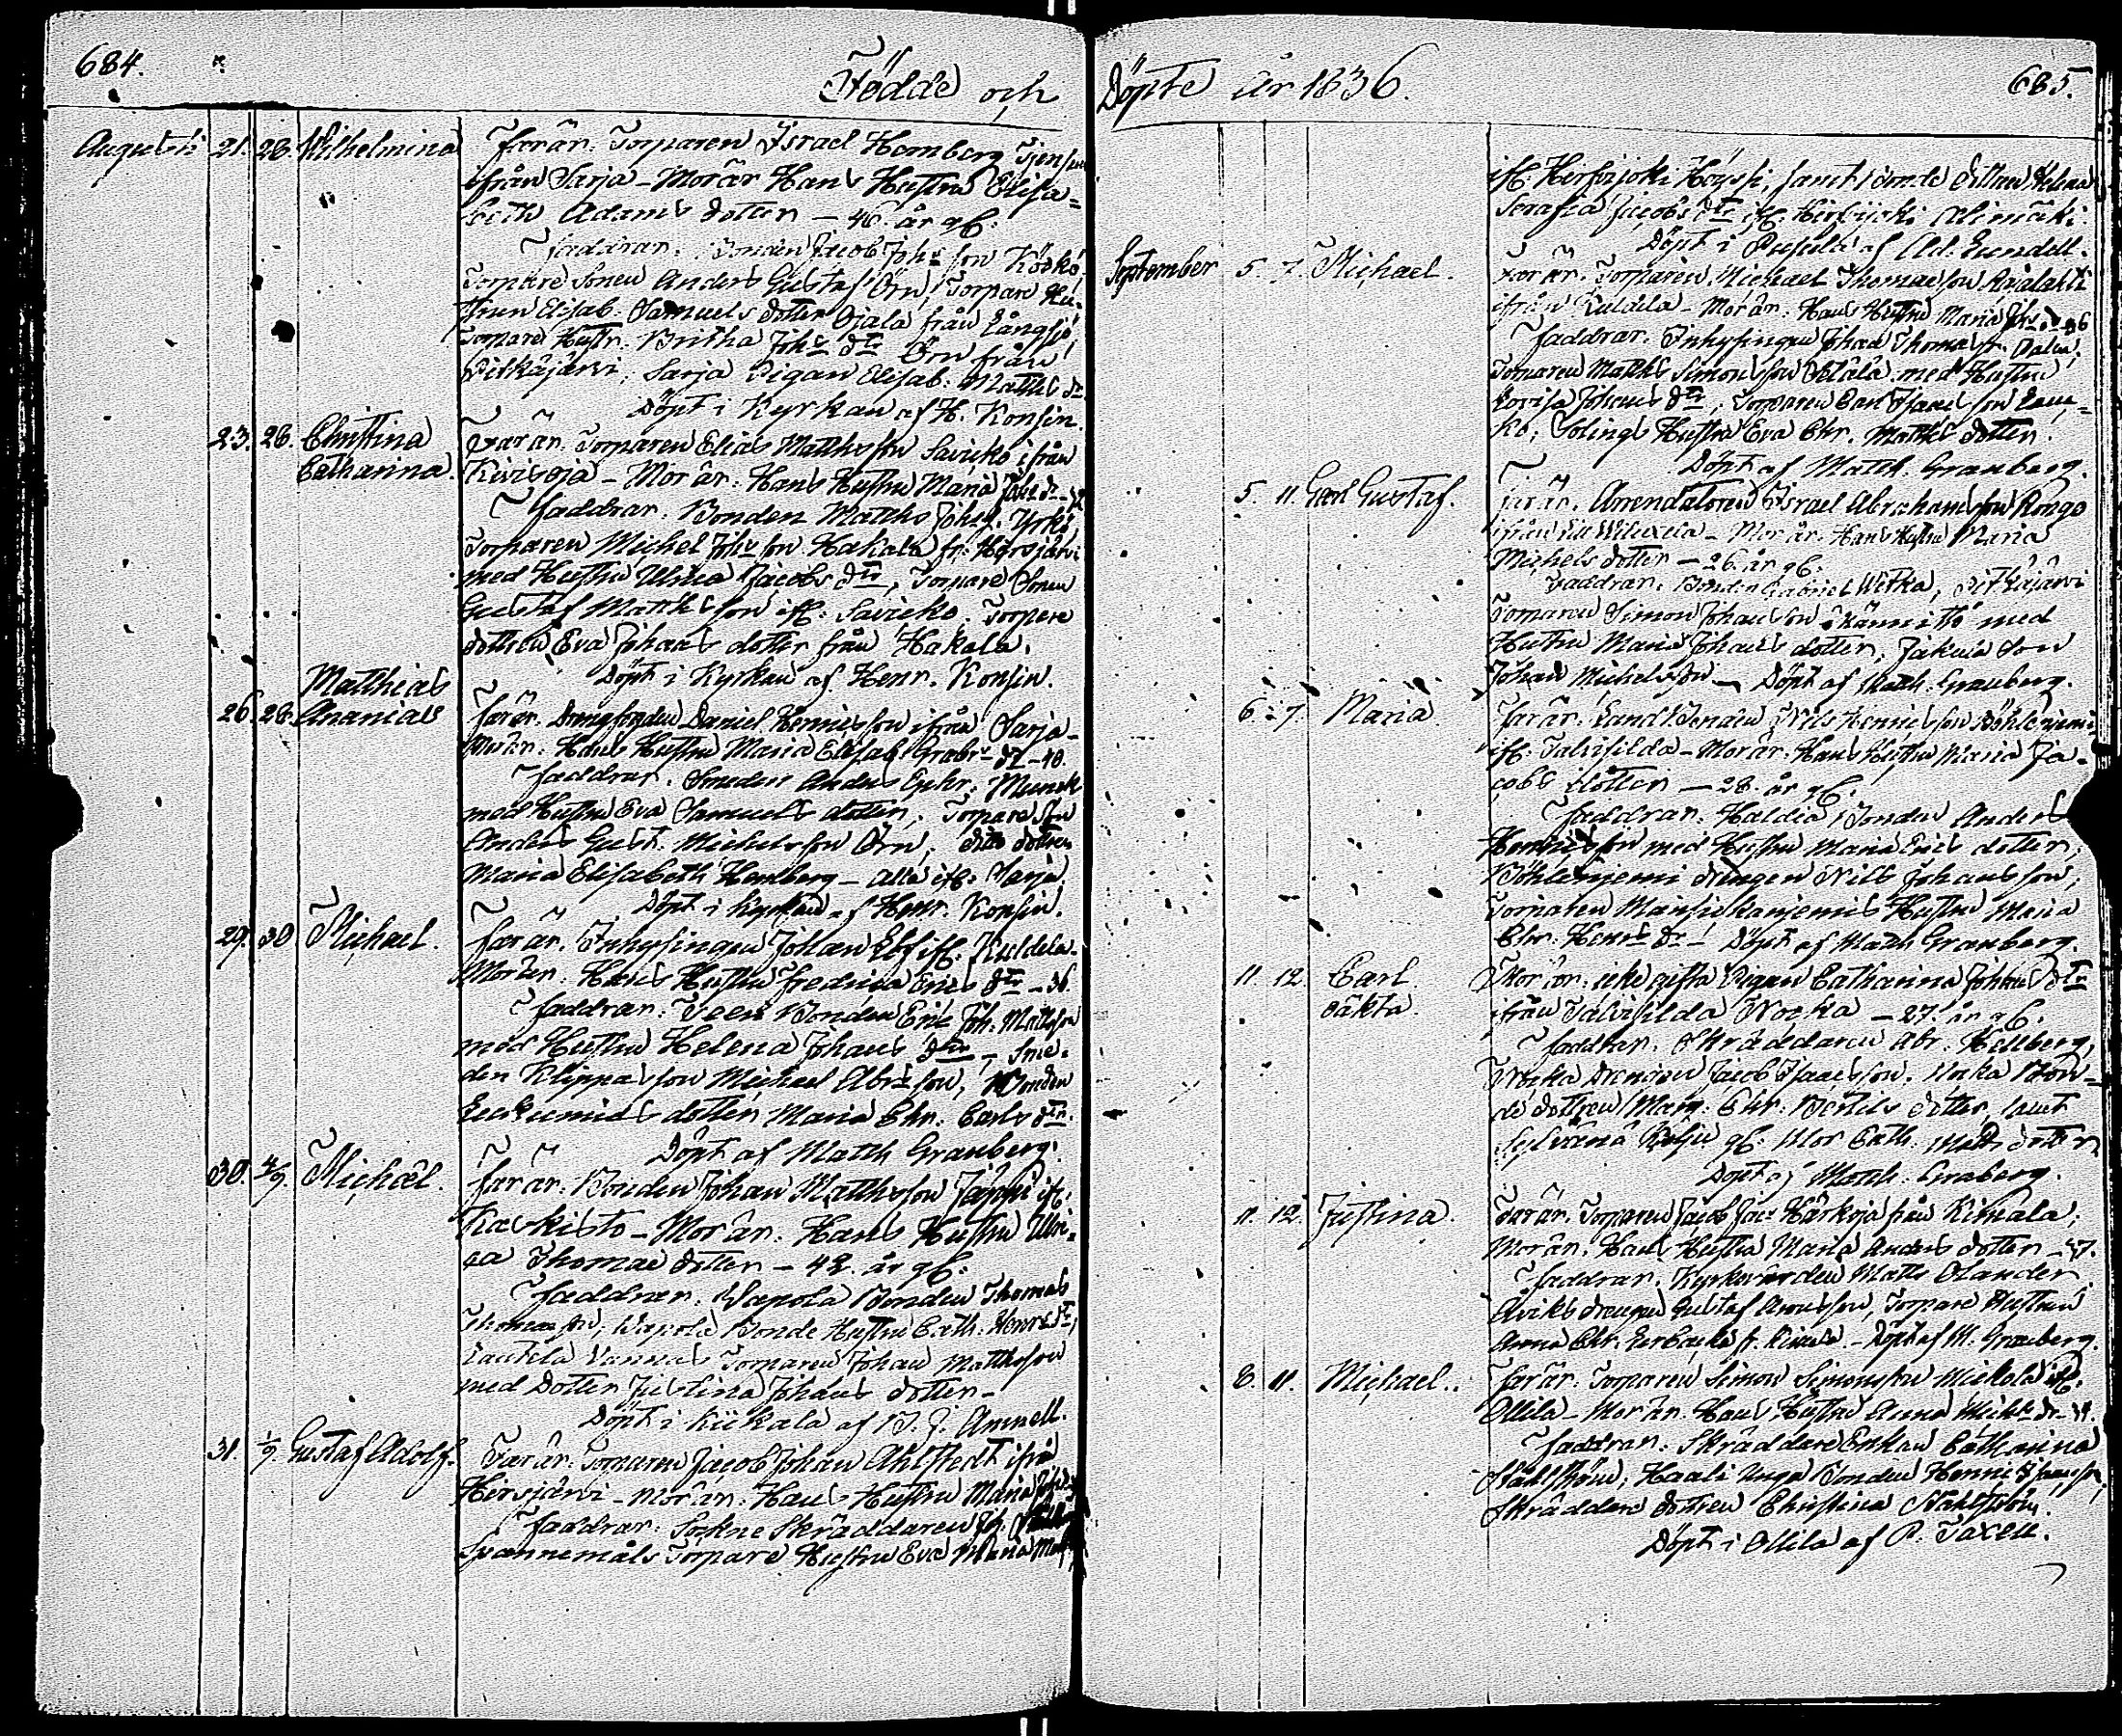 684.
Födde och
Augusti 21. 28. Wilhelmina Far är. Torparen Israel Hemberg
ifrån Sarja - Mor är Hans Hustru Elisa=
beth Adams dotter - 46. år gl.
Faddrar. Bonden Jacob Johs son
Torpare Sonen Anders Gustaf Örn, Torpare Hu-
strun Elisab. Samuels dotter Ojala från Långsjö
Torpare Hustr. Britha Johs dtr Örn från
Pitkäjärvi, Sarja Pigan Elisab. Matths dr
Döpt i Kyrkan af H. Konsin.
23. 28. Christina Far är. Torparen Elias Matths son Savickо ifrån
Catharina. Kivisoja - Mor är. Hans Hustru Maria
Faddrar. Bonden Matths Johs. Yrkö
Torparen Michel Johs son Hakala fr. Hirsjärvi
med Hustru Ulrica Jacobs dtr, Torpare Sonen
Gustaf Matths son ifl. Savicko. Torpare
dottren Eva Johans dotter från Hakala.
Döpt i Kyrkan af Henr. Konsin.
Matthias
26. 28. Ananias Far är. Daniel Henrics son ifrån Sarja-
Mor är. Hans Hustru Maria Elisab. Gabrs dr - 40.
Faddrar. Smeden Anders Munck
med Hustru Eva Samuels dotter, Torpare Son
Anders Gust. Michels son Örn, dito dottren
Maria Elisabeth Hemberg - alla ifl. Sarja.
Döpt i Kyrkan af Henr. Konsin.
29. 30 Michael. Far är. Inhysingen Johan Elf ifl. Kuldela.
Mor är. Hans Hustru Fredrica Erics dtr - 36.
Faddrar. Bonden Eric Joh. Mattsson
med Hustru Helena Johans dtr, Sme-
den Klippas son Michael Abrs son, Bonden
dotter Maria Chr. Carls dtr.
Döpt af Matth Granberg.
30. 4/9. Michael. Far är. Bonden Johan Matths son Jäppi ifl.
Kaskisto - Mor är. Hans Hustru Ulri-
ca Thomae dotter - 42. år gl.
Faddrar. Wapola Bonden Thomas
Thomasson, Wapola Bonde Hustru Cath. Henrs dtr,
Vannas Torparen Johan Mattsson
med Dotter Justina Johans dotter -
Döpt i Kiikala af B. J. Amnell.
31. 1/9. Gustaf Adolf. Far är. Torparen Jacob Johan Ahlstedt ifrå
Hirsjärvi - Mor är. Hans Hustru Maria
Faddrar. Sockne Skräddaren
Spannemåls Torpare Hustru Eva Maria
Döpte År 1836.
685.
ifl. Hirsijoki Höyssi, samt Bonde dottren Helena
Serafia Jacobs dtr ifl. Hirsijoki Alimäki.
Döpt i af Ad. Lundell.
September 5. 7. Michael. Far är. Torparen Michael Thomae son
ifrån Kuldela - Mor är. Hans Hustru Maria Johs dr 36
Faddrar. Inhysingen Johan Thomae s.
Torparen Matths Simons son med Hustru
Lovisa Johans dtr, Torparen Carl Isaacs son
Hustru Eva Chr. Matths dotter.
Döpt af Matth. Granberg.
5. 11. Carl Gustaf. Far är. Arrendatoren Israel Abrahamsson Rongo
ifrån - Mor är. Hans Hustru Maria
Michels dotter - 26. år gl.
Faddrar. Bonden Gabriel Witka, Pitkäjärvi
Torparen Simon Johans son med
Hustru Maria Johans dotter, Son
Johan Michelsson - Döpt af Matth. Granberg.
6. 7. Maria. Far är. Landbonden Nils Henrics son Böhleniemi
ifl. Talvisilda - Mor är. Hans Hustru Maria Ja-
cobs dotter - 28. år gl.
Faddrar. Haldia Bonden Anders
Henrics son med Hustru Maria Erics dotter,
Böhleniemi Drengen Nils Johans son,
Torparen Hustru Maria
Chr. Henrs dr - Döpt af Matth Granberg.
11. 12. Carl Mor är. icke gifta Pigan Catharina Johans dtr
oäkta. ifrån Talvisilda Nocka - 27. år gl.
Faddrar. Skräddaren Abr. Hellberg,
Nocka Drengen Jacob Isaacsson. Nocka Bon-
de dottren Marg. Chr. Bertils dotter, samt
gl. Mor Cath. Matts dotter
Döpt af Matth. Granberg.
11. 12. Justina. Far är. Torparen Jacob Jacs Härkoja från Kimala,
Mor är. Hans Hustru Maria Anders dotter - 27.
Faddrar. Kyrkovärden Matts Olander,
Åviks drengen Gustaf Aronsson, Torpare Hustrun
Anna Chr. - Döpt af M. Granberg.
8. 11. Michael.. Far är. Torparen Simon Simonsson Mickola ifl.
Ollila - Mor är. Hans Hustru Anna Michls dr - 34.
Faddrar. Skräddare Enkan Catharina
Stahlström, Haali Unga Bonden Henric Isaacsson,
Skräddare dottren Christina Stahlström.
Döpt i Ollila af P. Taxell.